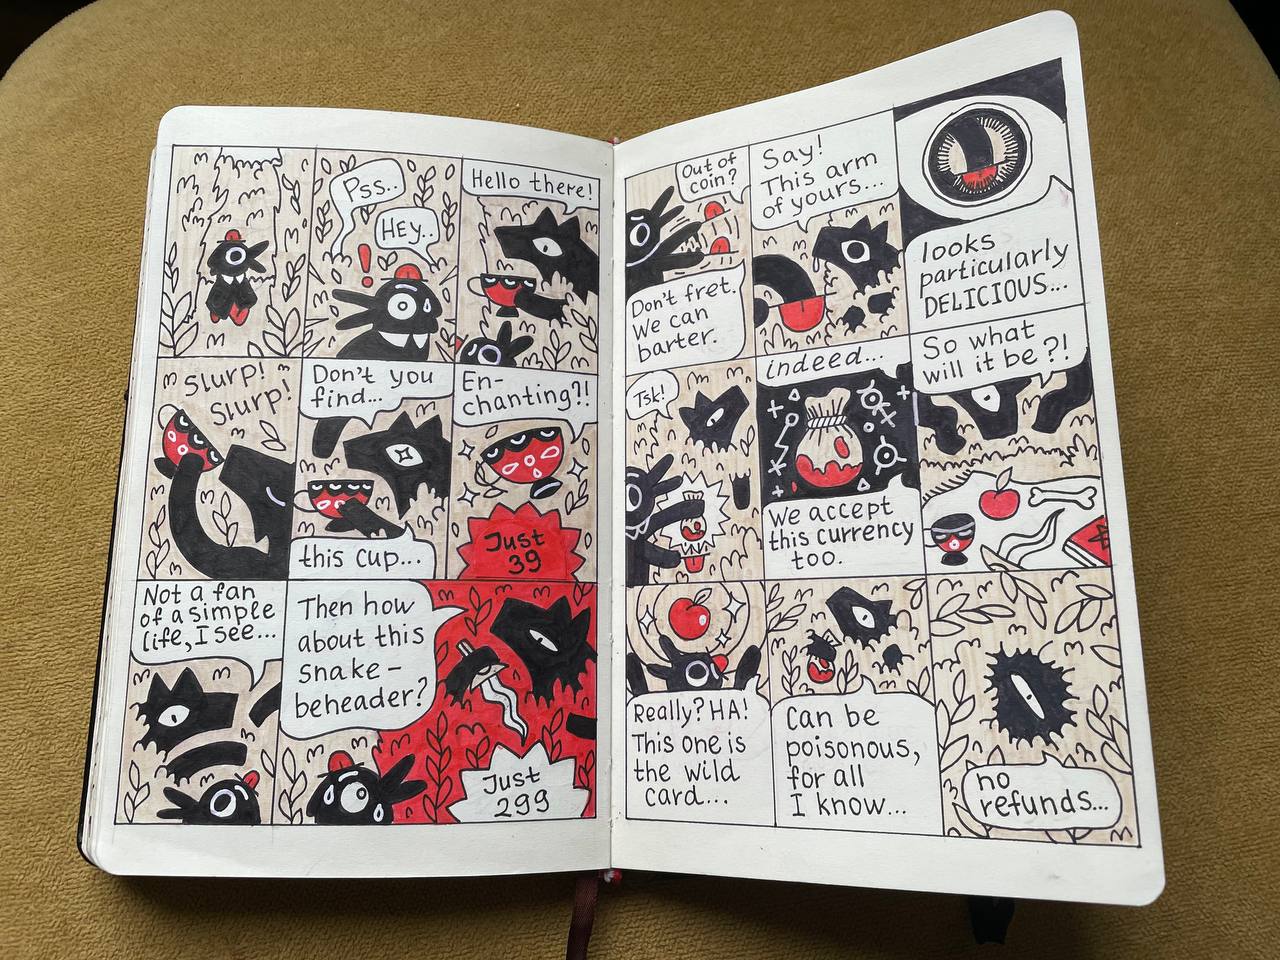 Pss..
Hey..
Hello there!
Slurp!
Slurp!
Don't you
find...
this cup...
En-
chanting?!
Just
39
Not a fan
of a simple
life, I see...
Then how
about this
snake-
beheader?
Just
299
Out of
coin?
Don't fret.
We can
barter.
Say!
This arm
of yours...
looks
particularly
DELICIOUS...
Tsk!
indeed...
we accept
this currency
too.
So what
will it be?!
Really? HA!
This one is
the wild
card...
Can be
poisonous,
for all
I know...
no
refunds...